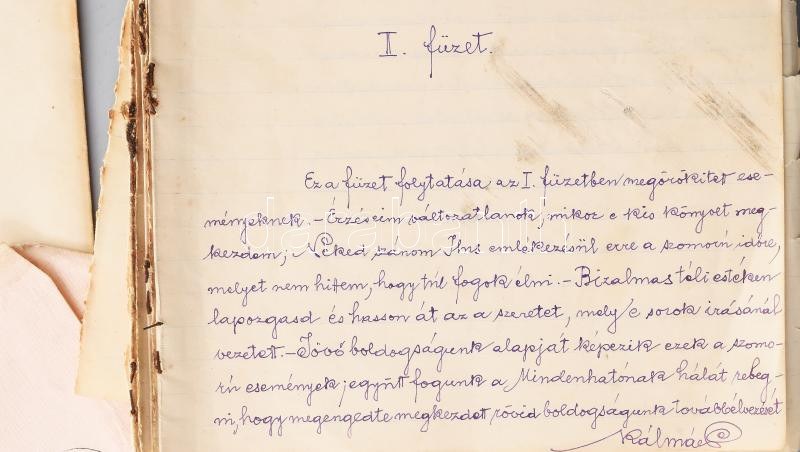 II. füzet.
Ez a füzet folytatása az I. füzetben megörökitett ese-
ményeknek. - Érzéseim változatlanok, mikor e kis könyvet meg-
kezdem; Néked szánom Ihns emlékezésül erre a szomorú időre,
melyet nem hittem, hogy túl fogok élni. - Bizalmas téli estéken
lapozgasd és hasson át az a szeretet, mely e sorok irásánál
vezetett. - Jövő boldogságunk alapját képezik ezek a szomo-
rú események; együtt fogunk a Mindenhatónak hálát rebeg-
ni, hogy megengedte megkezdett rövid boldogságunk továbbélvezését
Kálmán